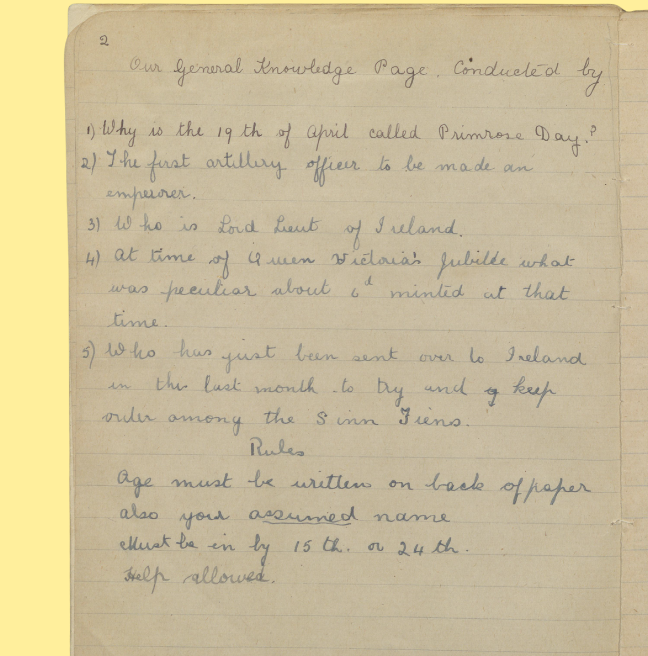 2
Our General Knowledge Page. Conducted by
1) Why is the 19 th of April called Primrose Day.?
2) The first artillery officer to be made an
emperorer.
3) Who is Lord Lieut of Ireland.
4) At time of Queen Victoria's Jubilee what
was peculiar about 6d minted at that
time.
5) Who has just been sent over to Ireland
in the last month to try and keep
order among the Sinn Fiens.
Rules
Age must be written on back of paper
also your assumed name
Must be in by 15 th. or 24 th.
Help allowed.